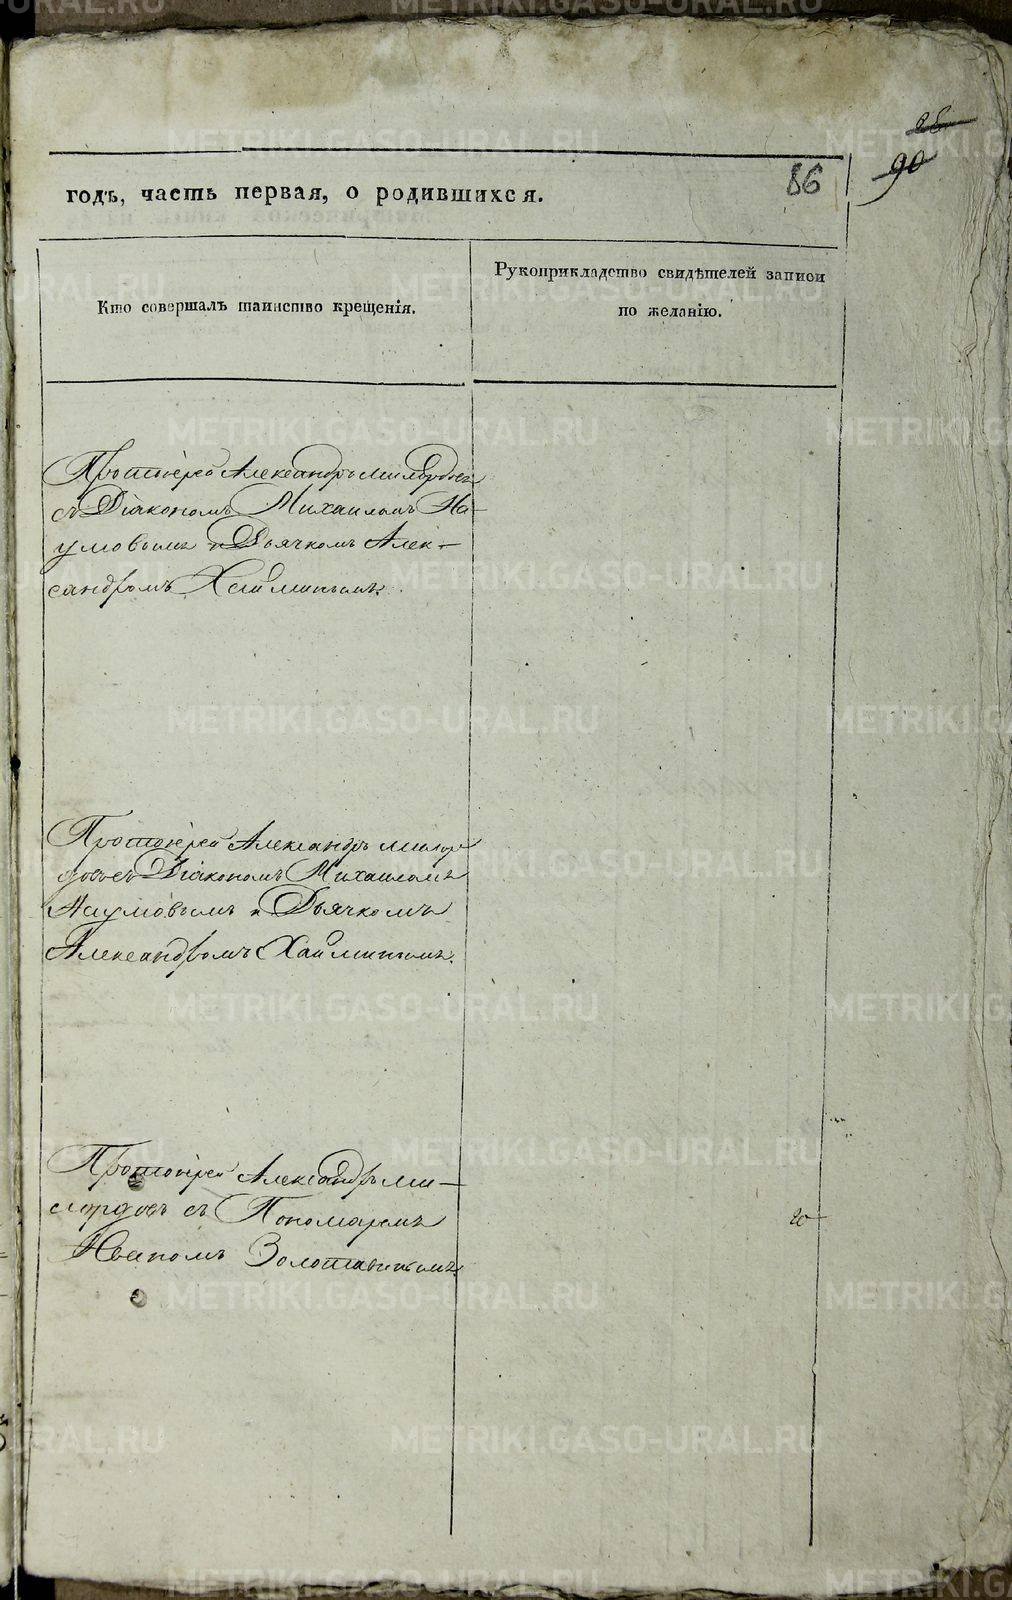 90
86
годъ, часть первая, о родившихся.
Кто совершалъ таинство крещенія.
Рукоприкладство свидѣтелей записи
по желанію.
Протоіерей Александръ Милордовъ
съ Діакономъ Михаиломъ На-
умовымъ и Дьячкомъ Алек-
сандромъ Хайминымъ.
Протоіерей Александръ Милор
довъ съ Діакономъ Михаиломъ
Наумовымъ и Дьячкомъ
Александромъ Хайминымъ.
Протоіерей Александръ Ми-
лордовъ съ Пономаремъ
Иваномъ Золотавинымъ.
METRIKI.GASO-URAL.RU